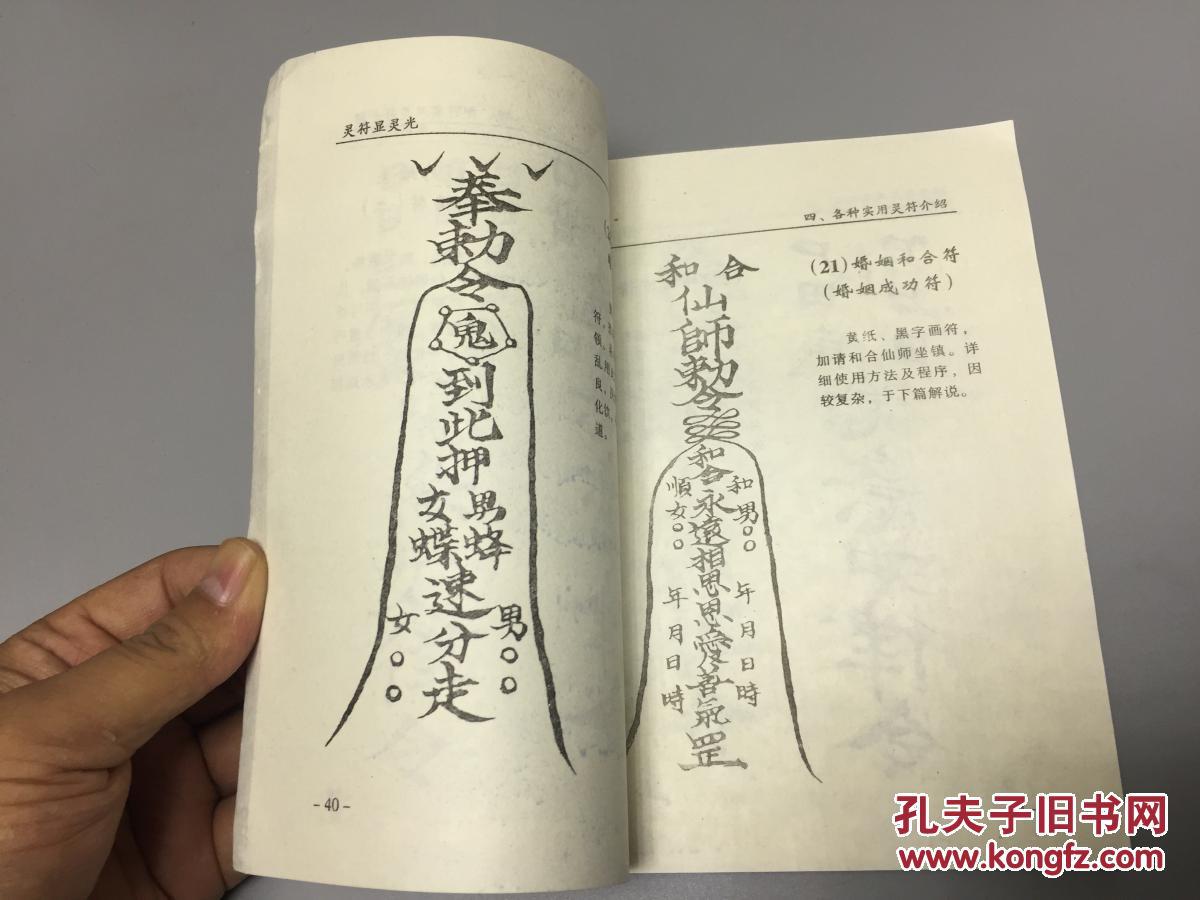 灵符显灵光
奉
勅
令
鬼
到
此
押
男蜂
女蝶
速
分
走
男○○
女○○
-40-
符，
领。
乱
良，
化
道。
四、各种实用灵符介绍
和合
仙
師
勅
令
和合永遠相思思愛
氣
罡
和男○○ 年月日時
順女○○ 年月日時
(21)婚姻和合符
(婚姻成功符)
黄纸、黑字画符，
加请和合仙师坐镇。详
细使用方法及程序，因
较复杂，于下篇解说。
孔夫子旧书网
www.kongfz.com